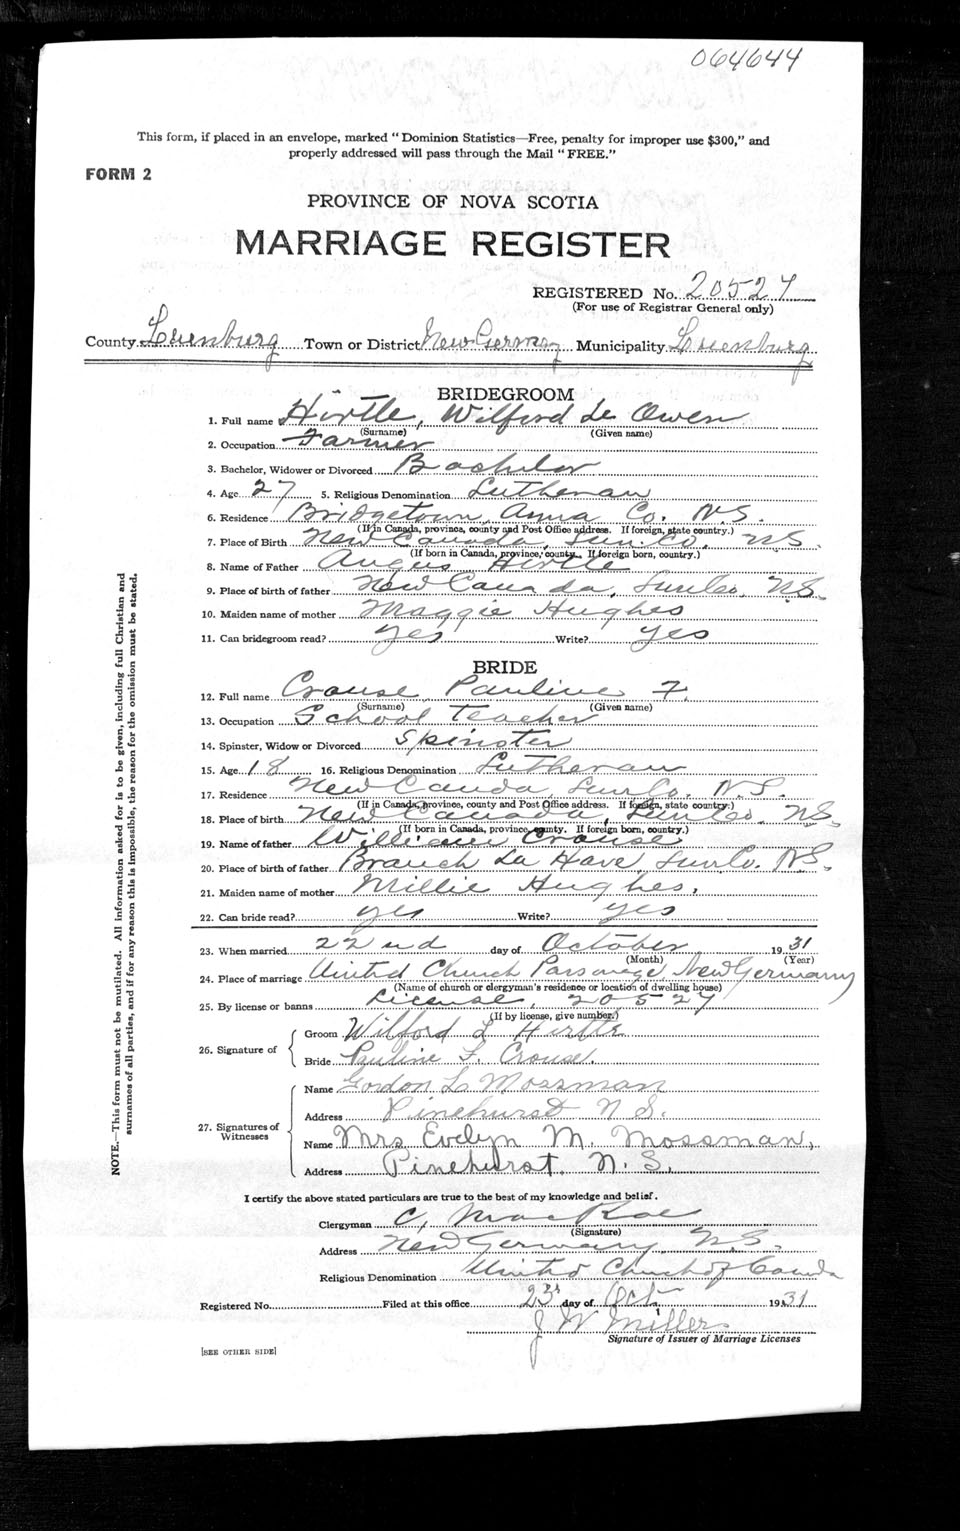 064644
This form, if placed in an envelope, marked "Dominion Statistics—Free, penalty for improper use $300," and
properly addressed will pass through the Mail "FREE."
FORM 2
PROVINCE OF NOVA SCOTIA
MARRIAGE REGISTER
REGISTERED No. 20527
(For use of Registrar General only)
County Luenburg Town or District New Germany Municipality Luenburg
BRIDEGROOM
1. Full name Hirtle, Wilford Le Owen
(Surname) (Given name)
2. Occupation Farmer
3. Bachelor, Widower or Divorced Bachelor
4. Age 27 5. Religious Denomination Lutheran
6. Residence Bridgetown, Anna Co. N.S.
(If in Canada, province, county and Post Office address. If foreign, state country.)
7. Place of Birth New Canada, Lun. Co. N.S.
(If born in Canada, province, county. If foreign born, country.)
8. Name of Father Angus Hirtle
9. Place of birth of father New Canada, Lun Co. N.S.
10. Maiden name of mother Maggie Hughes
11. Can bridegroom read? yes Write? yes
BRIDE
12. Full name Crouse Pauline F.
(Surname) (Given name)
13. Occupation School Teacher
14. Spinster, Widow or Divorced Spinster
15. Age 18 16. Religious Denomination Lutheran
17. Residence New Canada, Lun Co. N.S.
(If in Canada, province, county and Post Office address. If foreign, state country.)
18. Place of birth New Canada, Lun Co. N.S.
(If born in Canada, province, county. If foreign born, country.)
19. Name of father William Crouse
20. Place of birth of father Branch La Have, Lun Co. N.S.
21. Maiden name of mother Millie Hughes.
22. Can bride read? yes Write? yes
23. When married 22nd day of October 1931
(Month) (Year)
24. Place of marriage United Church Parsonage, New Germany
(Name of church or clergyman's residence or location of dwelling house)
25. By license or banns License, 20527
(If by license, give number.)
26. Signature of Groom Wilford L Hirtle
Bride Pauline F. Crouse.
27. Signatures of Witnesses Name Gordon L Mossman
Address Pinehurst N S.
Name Mrs Evelyn M. Mossman,
Address Pinehurst, N. S.
I certify the above stated particulars are true to the best of my knowledge and belief.
Clergyman C, MacRae
(Signature)
Address New Germany, N.S.
Religious Denomination United Church of Canada
Registered No. Filed at this office 23rd day of Oct. 1931
J W Miller
Signature of Issuer of Marriage Licenses
[SEE OTHER SIDE]
NOTE.—This form must not be mutilated. All information asked for is to be given, including full Christian and
surnames of all parties, and if for any reason this is impossible, the reason for the omission must be stated.